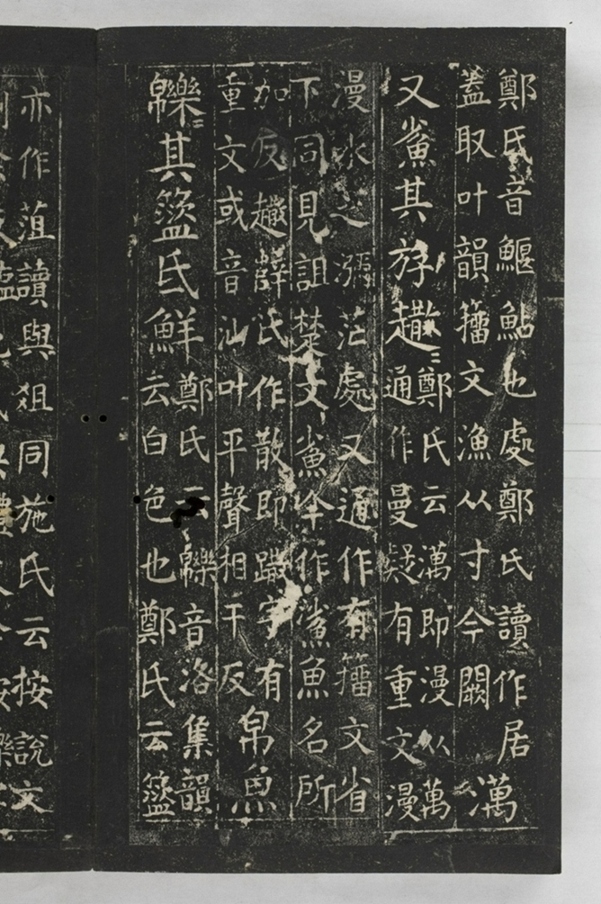 鄭氏音鰋鮎也處鄭氏讀作居
蓋取叶韻籀文漁从寸今闕
澫
又其斿
鄭氏云澫即漫从萬
通作曼疑有重文漫
漫水之瀰茫處又通作有籀文省
下同見詛楚文今作鯊魚名所
加反薛氏作散即字有
重文或音汕叶平聲相干反
帛魚
其氏鮮
鄭氏云音洛集韻
云白色也鄭氏云
亦作菹讀與狙同施氏云按說文